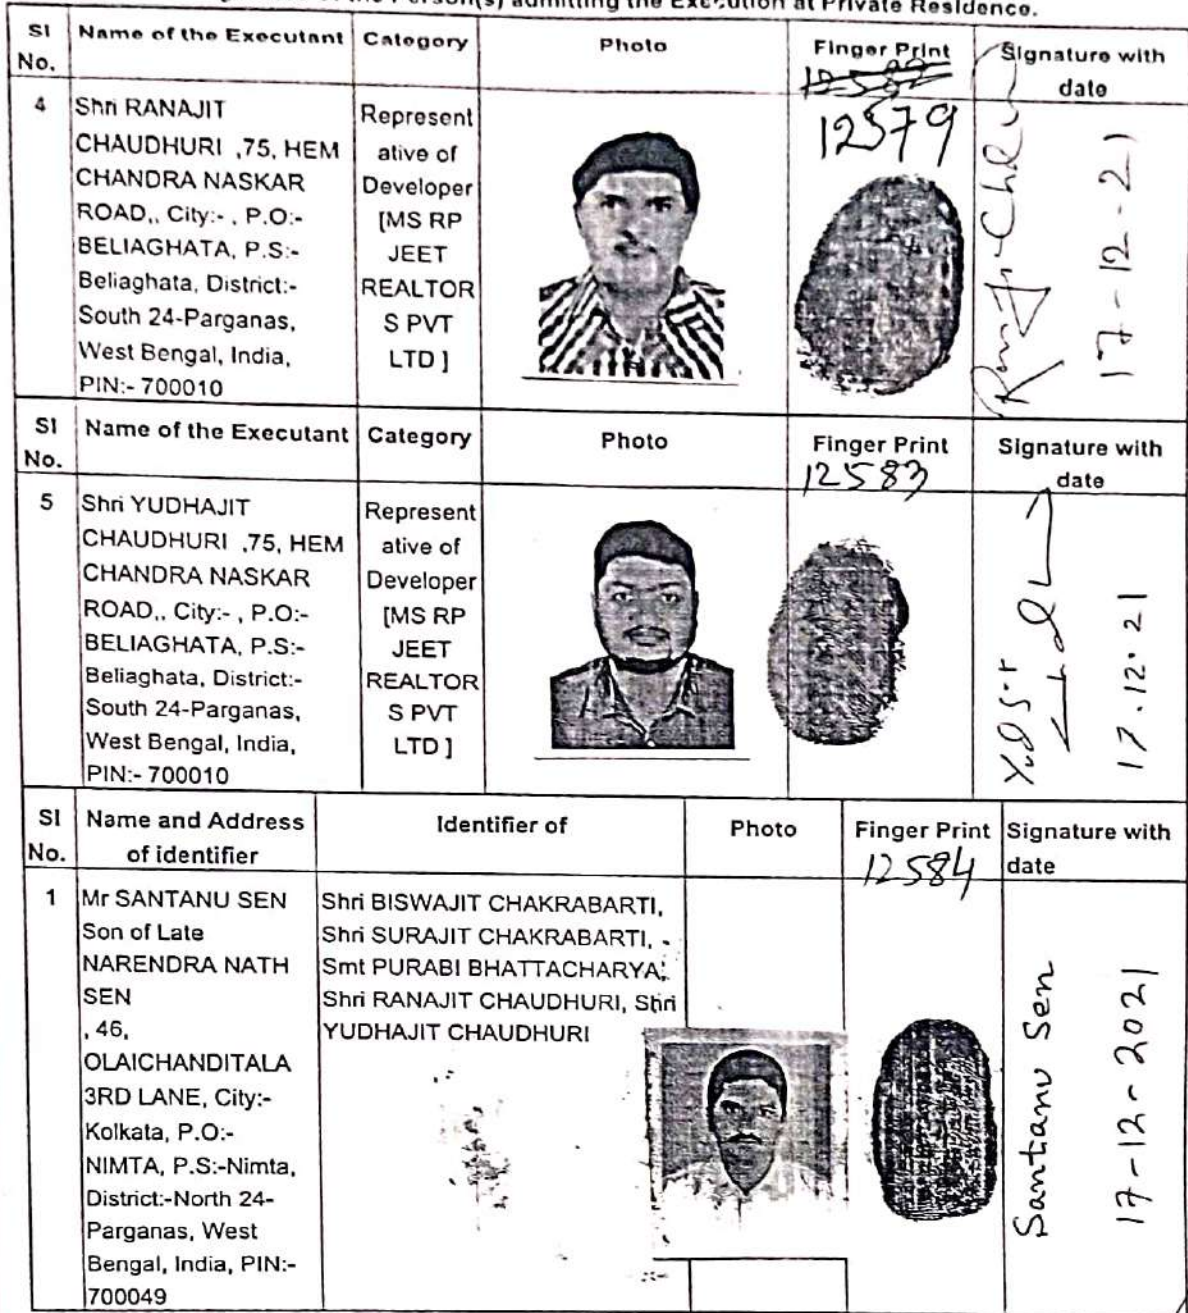 the Person(s) admitting the Execution at Private Residence.
Sl No. Name of the Executant Category Photo Finger Print Signature with date
12579
4 Shri RANAJIT
CHAUDHURI ,75, HEM
CHANDRA NASKAR
ROAD,, City:- , P.O:-
BELIAGHATA, P.S:-
Beliaghata, District:-
South 24-Parganas,
West Bengal, India,
PIN:- 700010
Represent
ative of
Developer
[MS RP
JEET
REALTOR
S PVT
LTD ]
17-12-21
Sl No. Name of the Executant Category Photo Finger Print Signature with date
12583
5 Shri YUDHAJIT
CHAUDHURI ,75, HEM
CHANDRA NASKAR
ROAD,, City:- , P.O:-
BELIAGHATA, P.S:-
Beliaghata, District:-
South 24-Parganas,
West Bengal, India,
PIN:- 700010
Represent
ative of
Developer
[MS RP
JEET
REALTOR
S PVT
LTD ]
17.12.21
Sl No. Name and Address of identifier Identifier of Photo Finger Print Signature with date
12584
1 Mr SANTANU SEN
Son of Late
NARENDRA NATH
SEN
, 46,
OLAICHANDITALA
3RD LANE, City:-
Kolkata, P.O:-
NIMTA, P.S:-Nimta,
District:-North 24-
Parganas, West
Bengal, India, PIN:-
700049
Shri BISWAJIT CHAKRABARTI,
Shri SURAJIT CHAKRABARTI,
Smt PURABI BHATTACHARYA,
Shri RANAJIT CHAUDHURI, Shri
YUDHAJIT CHAUDHURI
Santanu Sen
17-12-2021